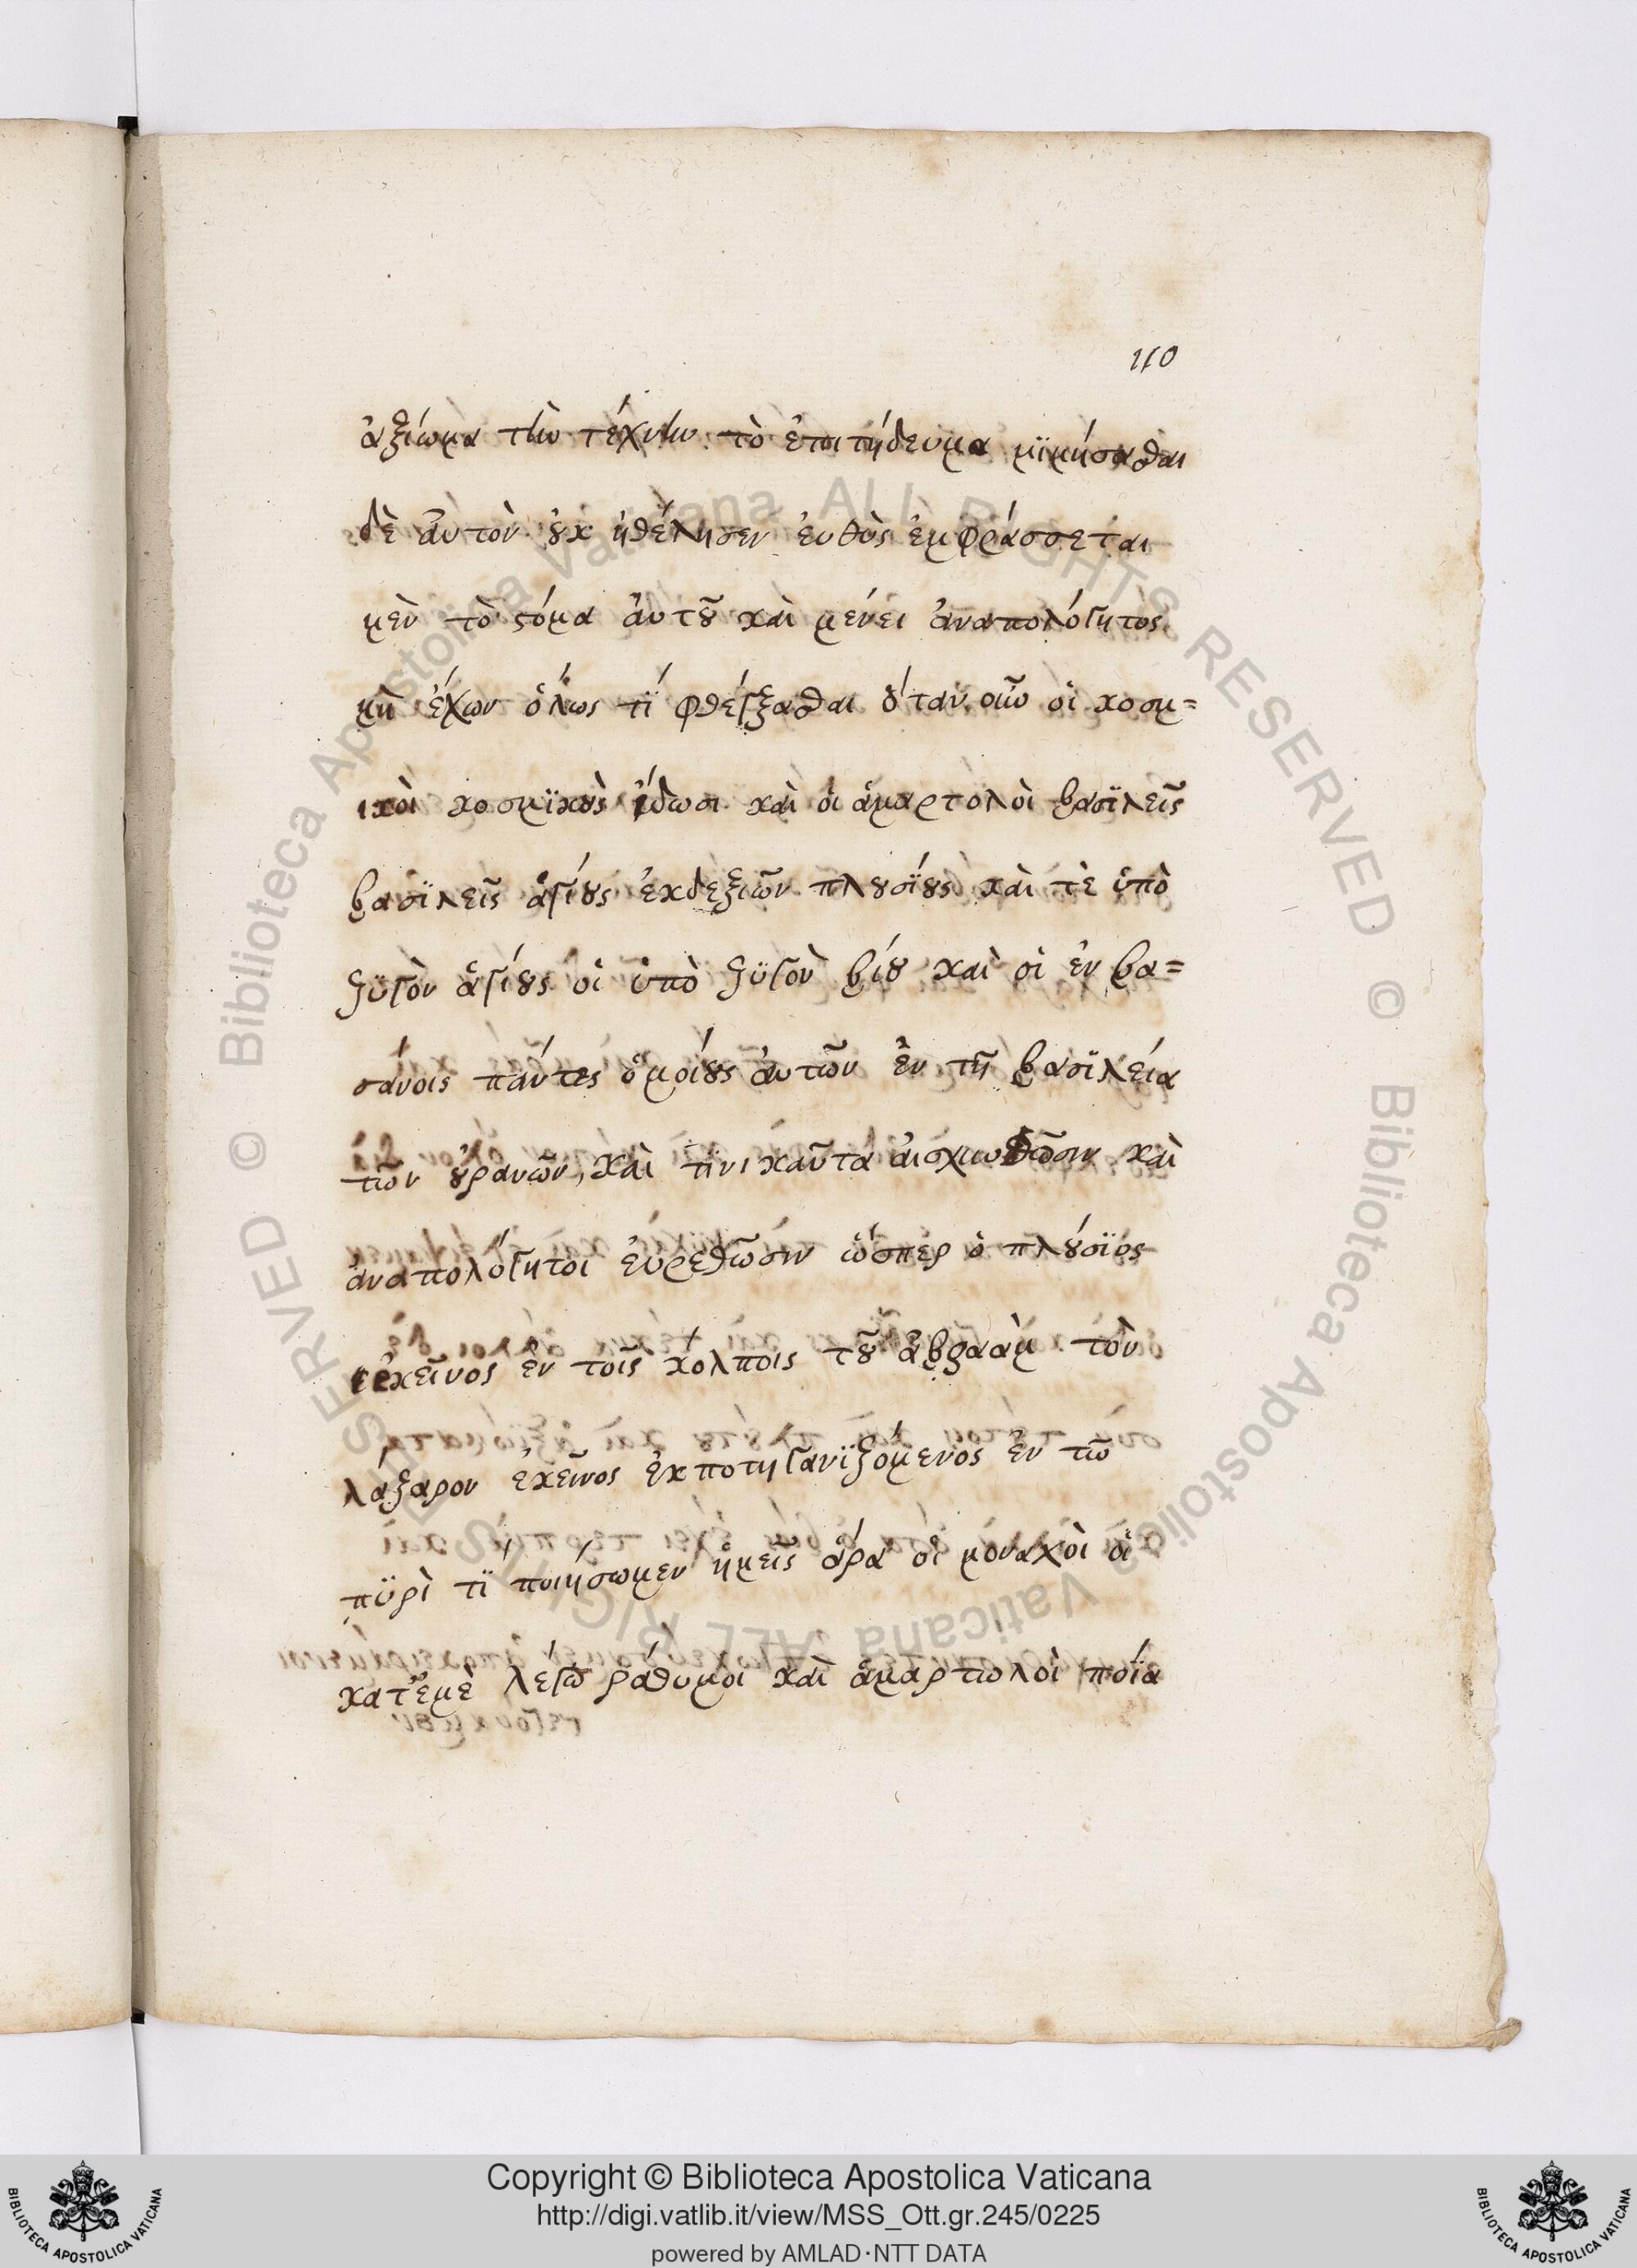 110
ἀξίωμα τὴν τέχνην τὸ ἐπιτήδευμα μϊμήσασθαι
δὲ ἀυτὸν ȣκ ἠθέλησεν ἐυθὺς ἐμφράσσεται
μὲν τὸ ϛόμα ἀυτȣ͂ καὶ μένει ἀναπολόγητος
μὴ ἔχων ὅλως τϊ φθέγξασθαι ὅταν οὖν οἱ κοσμ=
ικὸι κοσμϊκȣ̀ς ἴδωσι καὶ ὁι ἁμαρτολὸι βασϊλεῖς
βασϊλεῖς ἁγίȣς ἐκδεξιῶν πλȣσίȣς καὶ τὲ ὑπὸ
ζϋγὸν ἁγίȣς οἱ ὑπὸ ζϋγὸν βίȣ καὶ οἱ ἐν βα=
σάνοις πάντες ὁμοίȣς ἀυτῶν ἐν τῆ βασϊλεία
τῶν ȣ̓ρανῶν, καὶ τϊνικαῦτα ἀισχυνθῶσιν καὶ
ἀναπολόγητοι ἐυρεθῶσιν ὥσπερ ὁ πλȣ́σϊος
ἐκεῖνος ἐν τοῖς κολποις τȣ͂ ἀβραὰμ τὸν
λάζαρον ἐκεῖνος ἐκποτηγανϊζόμενος ἐν τῶ
πϋρὶ τϊ ποιήσωμεν ἡμεῖς ἄρα οἱ μοναχὸι ὁι
κατἐμὲ λέγω ράθυμοι καὶ ἁμαρτωλοὶ ποία
Copyright © Biblioteca Apostolica Vaticana
http://digi.vatlib.it/view/MSS_Ott.gr.245/0225
powered by AMLAD·NTT DATA
BIBLIOTECA APOSTOLICA VATICANA
BIBLIOTECA APOSTOLICA VATICANA
© Biblioteca Apostolica Vaticana ALL RIGHTS RESERVED © Biblioteca Apostolica Vaticana ALL RIGHTS RESERVED